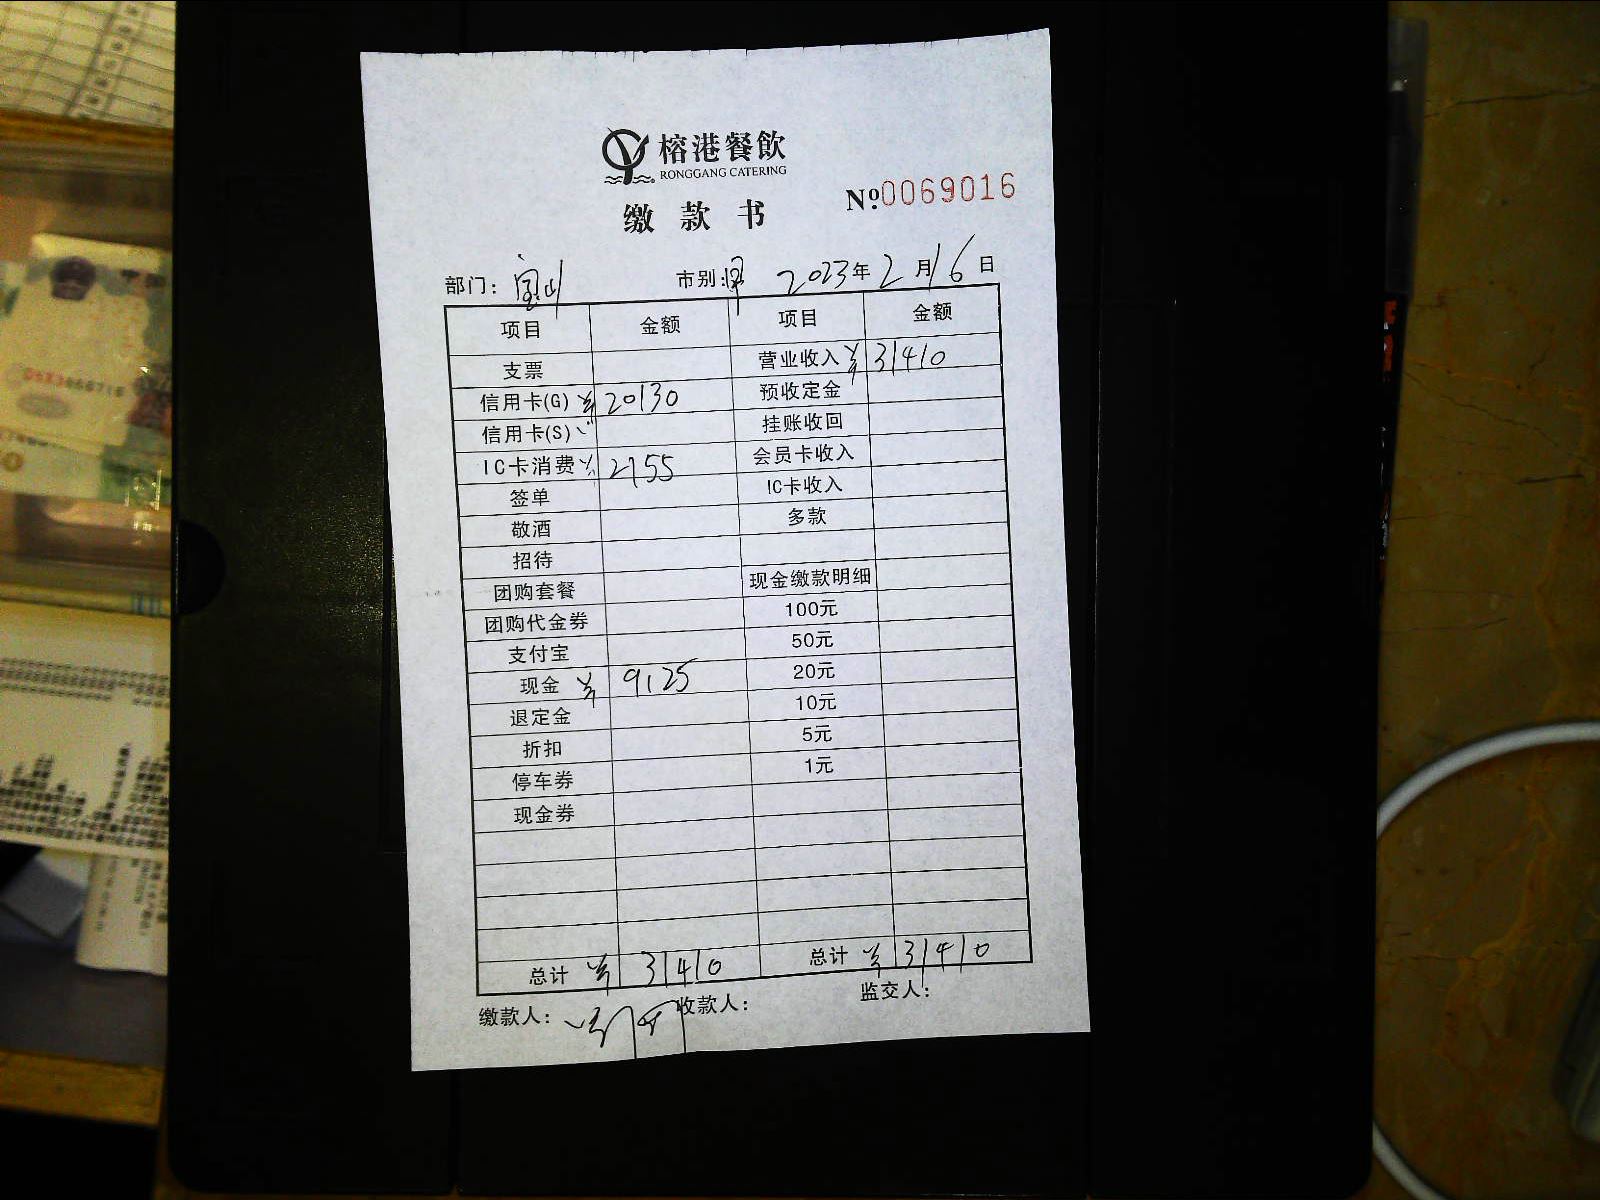 榕港餐飲
RONGGANG CATERING
缴款书 Nº0069016
部门：宝山 市别: 2023年2月16日
项目 金额 项目 金额
支票 营业收入 ¥31410
信用卡(G) ¥20130 预收定金
信用卡(S) 挂账收回
IC卡消费 ¥2155 会员卡收入
签单 IC卡收入
敬酒 多款
招待
团购套餐 现金缴款明细
团购代金券 100元
支付宝 50元
现金 ¥9125 20元
退定金 10元
折扣 5元
停车券 1元
现金券
总计 ¥31410 总计 ¥31410
缴款人： 收款人： 监交人：